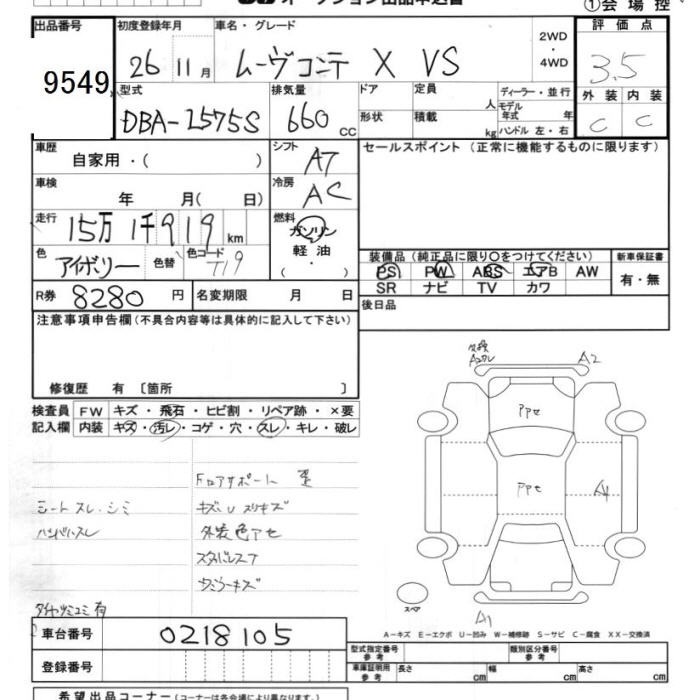 オークション出品申込書
①会場控
出品番号 初度登録年月 車名・グレード 2WD 評価点
9549 26 11月 ムーヴコンテ X VS ・4WD 3.5
型式 排気量 ドア 定員 人 ディーラー・並行 外装 内装
DBA-L575S 660 CC 形状 積載 kg モデル年式 年 C C
ハンドル 左・右
車歴 自家用・( ) シフト AT セールスポイント(正常に機能するものに限ります)
車検 年 月( 日) 冷房 AC
走行 15万 1千919km 燃料 ガソリン 軽油 ・( )
色 アイボリー 色替 色コード T19
装備品(純正品に限り○をつけてください) 新車保証書
PS PW ABS エアB AW 有・無
SR ナビ TV カワ
R券 8280 円 名変期限 月 日 後日品
注意事項申告欄(不具合内容等は具体的に記入して下さい)
修復歴 有 〔箇所 〕
検査員 FW キズ・飛石・ヒビ割・リペア跡・×要
記入欄 内装 キズ・汚レ・コゲ・穴・スレ・キレ・破レ
A2
Fロアサポート 歪
シート スレ・シミ キズ、U スリキズ
ハンドルスレ 外装色アセ
A1
スペア
A1
A-キズ E-エクボ U-凹み W-補修跡 S-サビ C-腐食 XX-交換済
車台番号 0218105
登録番号
型式指定番号 参考 類別区分番号 参考
車庫証明用 参考 長さ cm 幅 cm 高さ cm
希望出品コーナー(コーナーは各会場により異なります。)